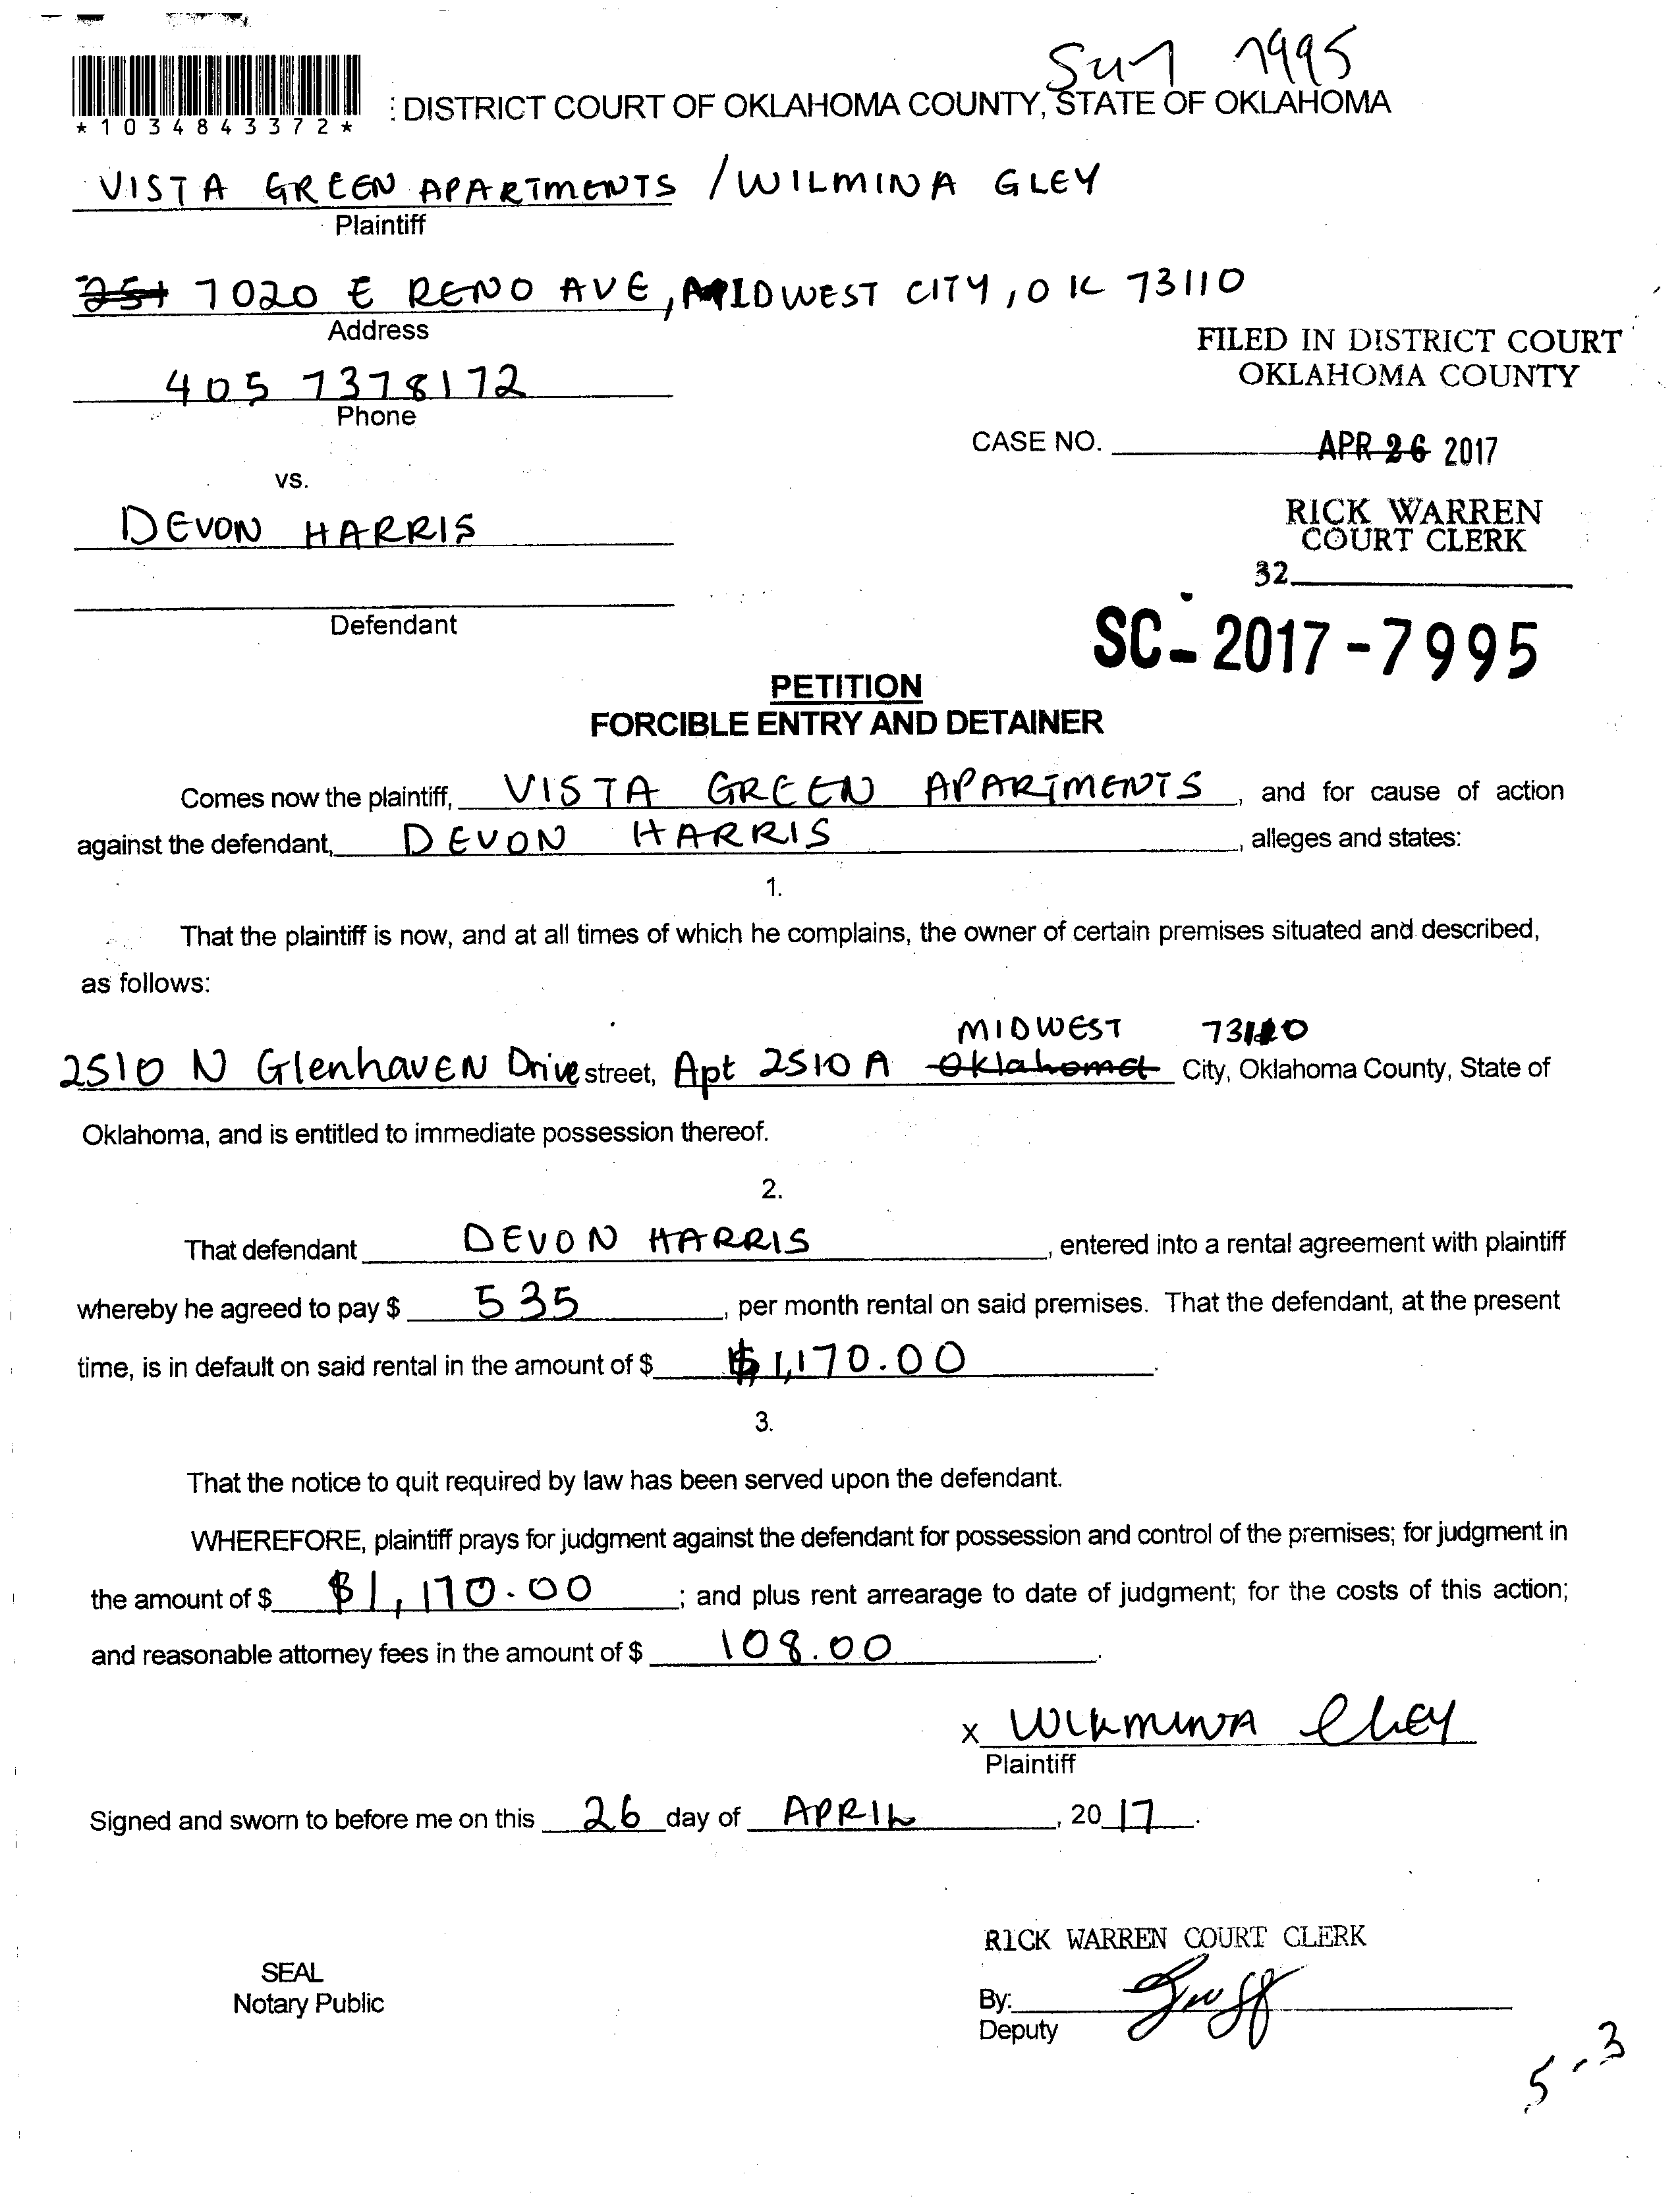 7995
*1034843372*
: DISTRICT COURT OF OKLAHOMA COUNTY, STATE OF OKLAHOMA
VISTA GREEN APARTMENTS / WILMINA GLEY
Plaintiff
251 7020 E RENO AVE, MIDWEST CITY, OK 73110
Address
FILED IN DISTRICT COURT
OKLAHOMA COUNTY
405 7378172
Phone
CASE NO. APR 26 2017
vs.
DEVON HARRIS
RICK WARREN
COURT CLERK
32
Defendant
SC-2017-7995
PETITION
FORCIBLE ENTRY AND DETAINER
Comes now the plaintiff, VISTA GREEN APARTMENTS, and for cause of action
against the defendant, DEVON HARRIS, alleges and states:
1.
That the plaintiff is now, and at all times of which he complains, the owner of certain premises situated and described,
as follows:
MIDWEST 73110
2510 N GlenhavEN Drive street, Apt 2510 A Oklahoma City, Oklahoma County, State of
Oklahoma, and is entitled to immediate possession thereof.
2.
That defendant DEVON HARRIS, entered into a rental agreement with plaintiff
whereby he agreed to pay $ 535, per month rental on said premises. That the defendant, at the present
time, is in default on said rental in the amount of $ $1,170.00.
3.
That the notice to quit required by law has been served upon the defendant.
WHEREFORE, plaintiff prays for judgment against the defendant for possession and control of the premises; for judgment in
the amount of $ $1,170.00; and plus rent arrearage to date of judgment; for the costs of this action;
and reasonable attorney fees in the amount of $ 108.00.
x WILMINA GLEY
Plaintiff
Signed and sworn to before me on this 26 day of APRIL, 2017.
RICK WARREN COURT CLERK
SEAL
Notary Public
By:
Deputy
5-3